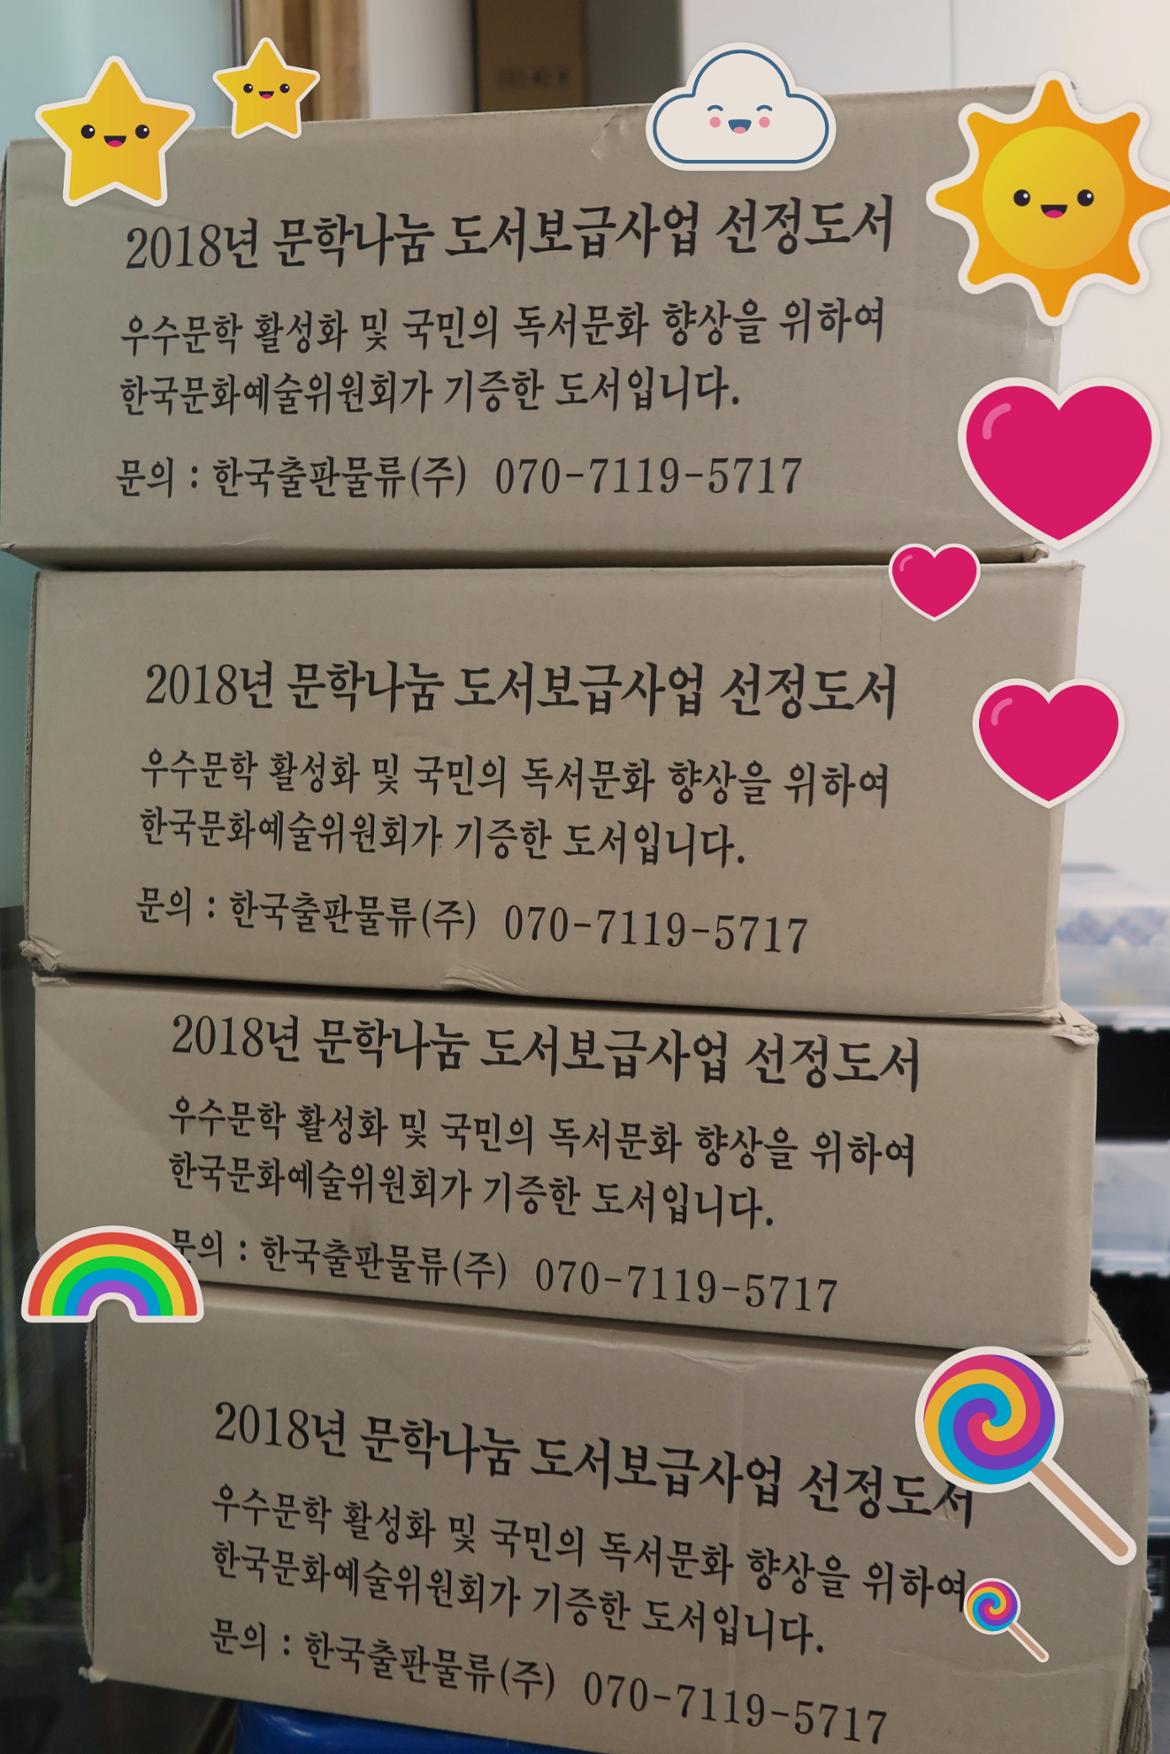 2018년 문학나눔 도서보급사업 선정도서
우수문학 활성화 및 국민의 독서문화 향상을 위하여
한국문화예술위원회가 기증한 도서입니다.
문의 : 한국출판물류(주) 070-7119-5717
2018년 문학나눔 도서보급사업 선정도서
우수문학 활성화 및 국민의 독서문화 향상을 위하여
한국문화예술위원회가 기증한 도서입니다.
문의 : 한국출판물류(주) 070-7119-5717
2018년 문학나눔 도서보급사업 선정도서
우수문학 활성화 및 국민의 독서문화 향상을 위하여
한국문화예술위원회가 기증한 도서입니다.
문의 : 한국출판물류(주) 070-7119-5717
2018년 문학나눔 도서보급사업 선정도서
우수문학 활성화 및 국민의 독서문화 향상을 위하여
한국문화예술위원회가 기증한 도서입니다.
문의 : 한국출판물류(주) 070-7119-5717